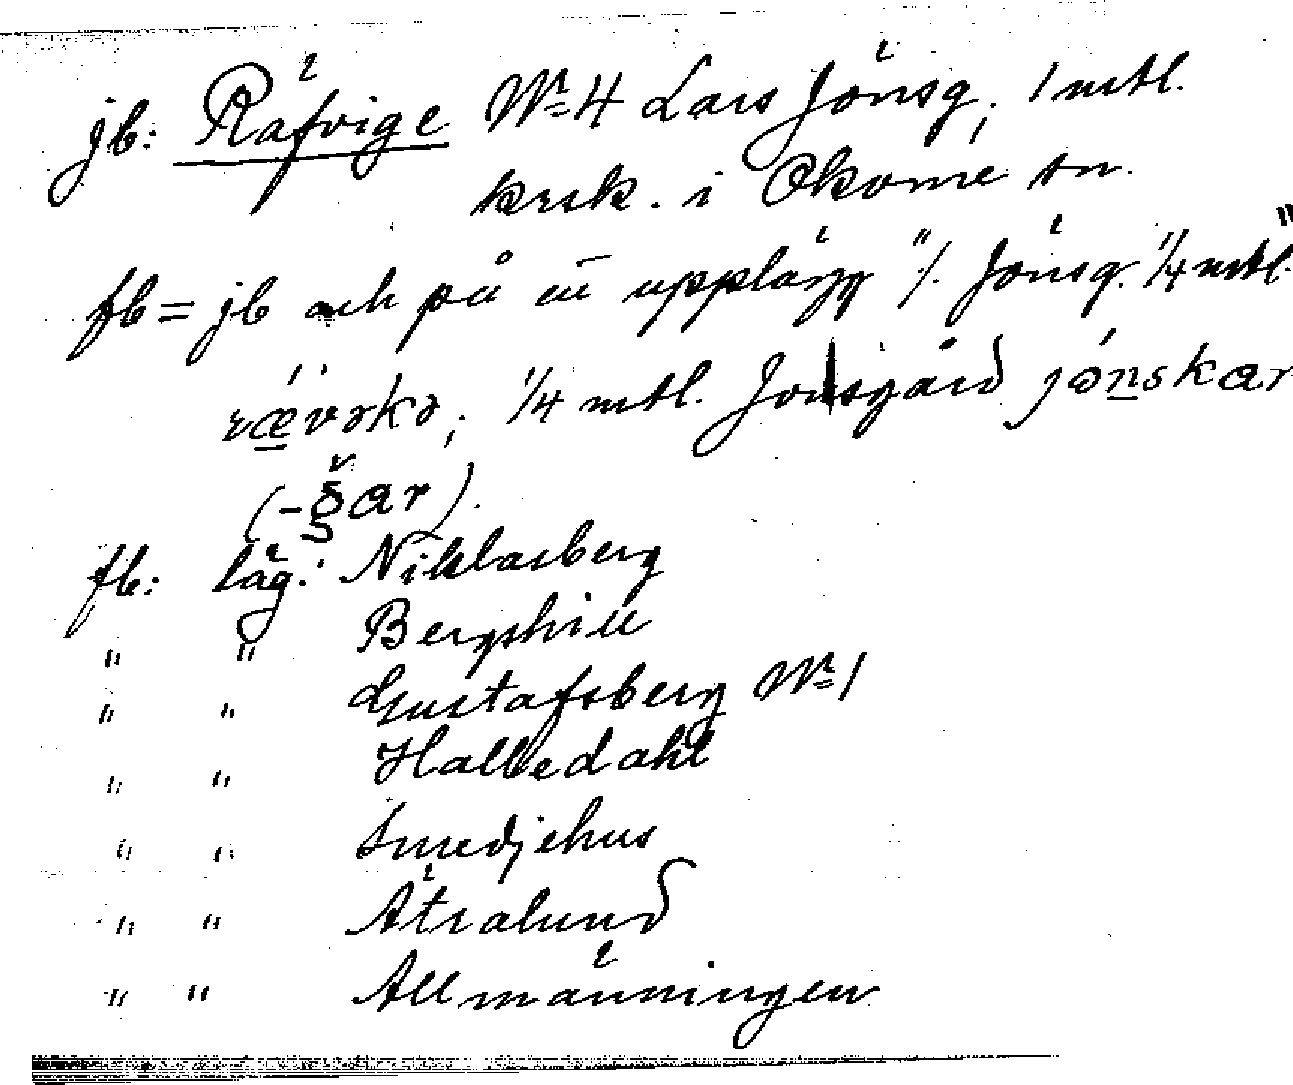 jb: Räfvige Nr 4 Lars Jönsg. 1 mtl.
krsk. i Okome sn.
fb = jb och på en upplägg "/. Jönsg. 1/4 mtl."
rævəkə; 1/4 mtl. Jonsgård jönskar
(-ǧar).
fb: läg.: Niklasberg
" " Bergshill
" " Gustafsberg Nr 1
" " Hallbedahl
" " Smedjehus
" " Ätralund
" " Allmänningen